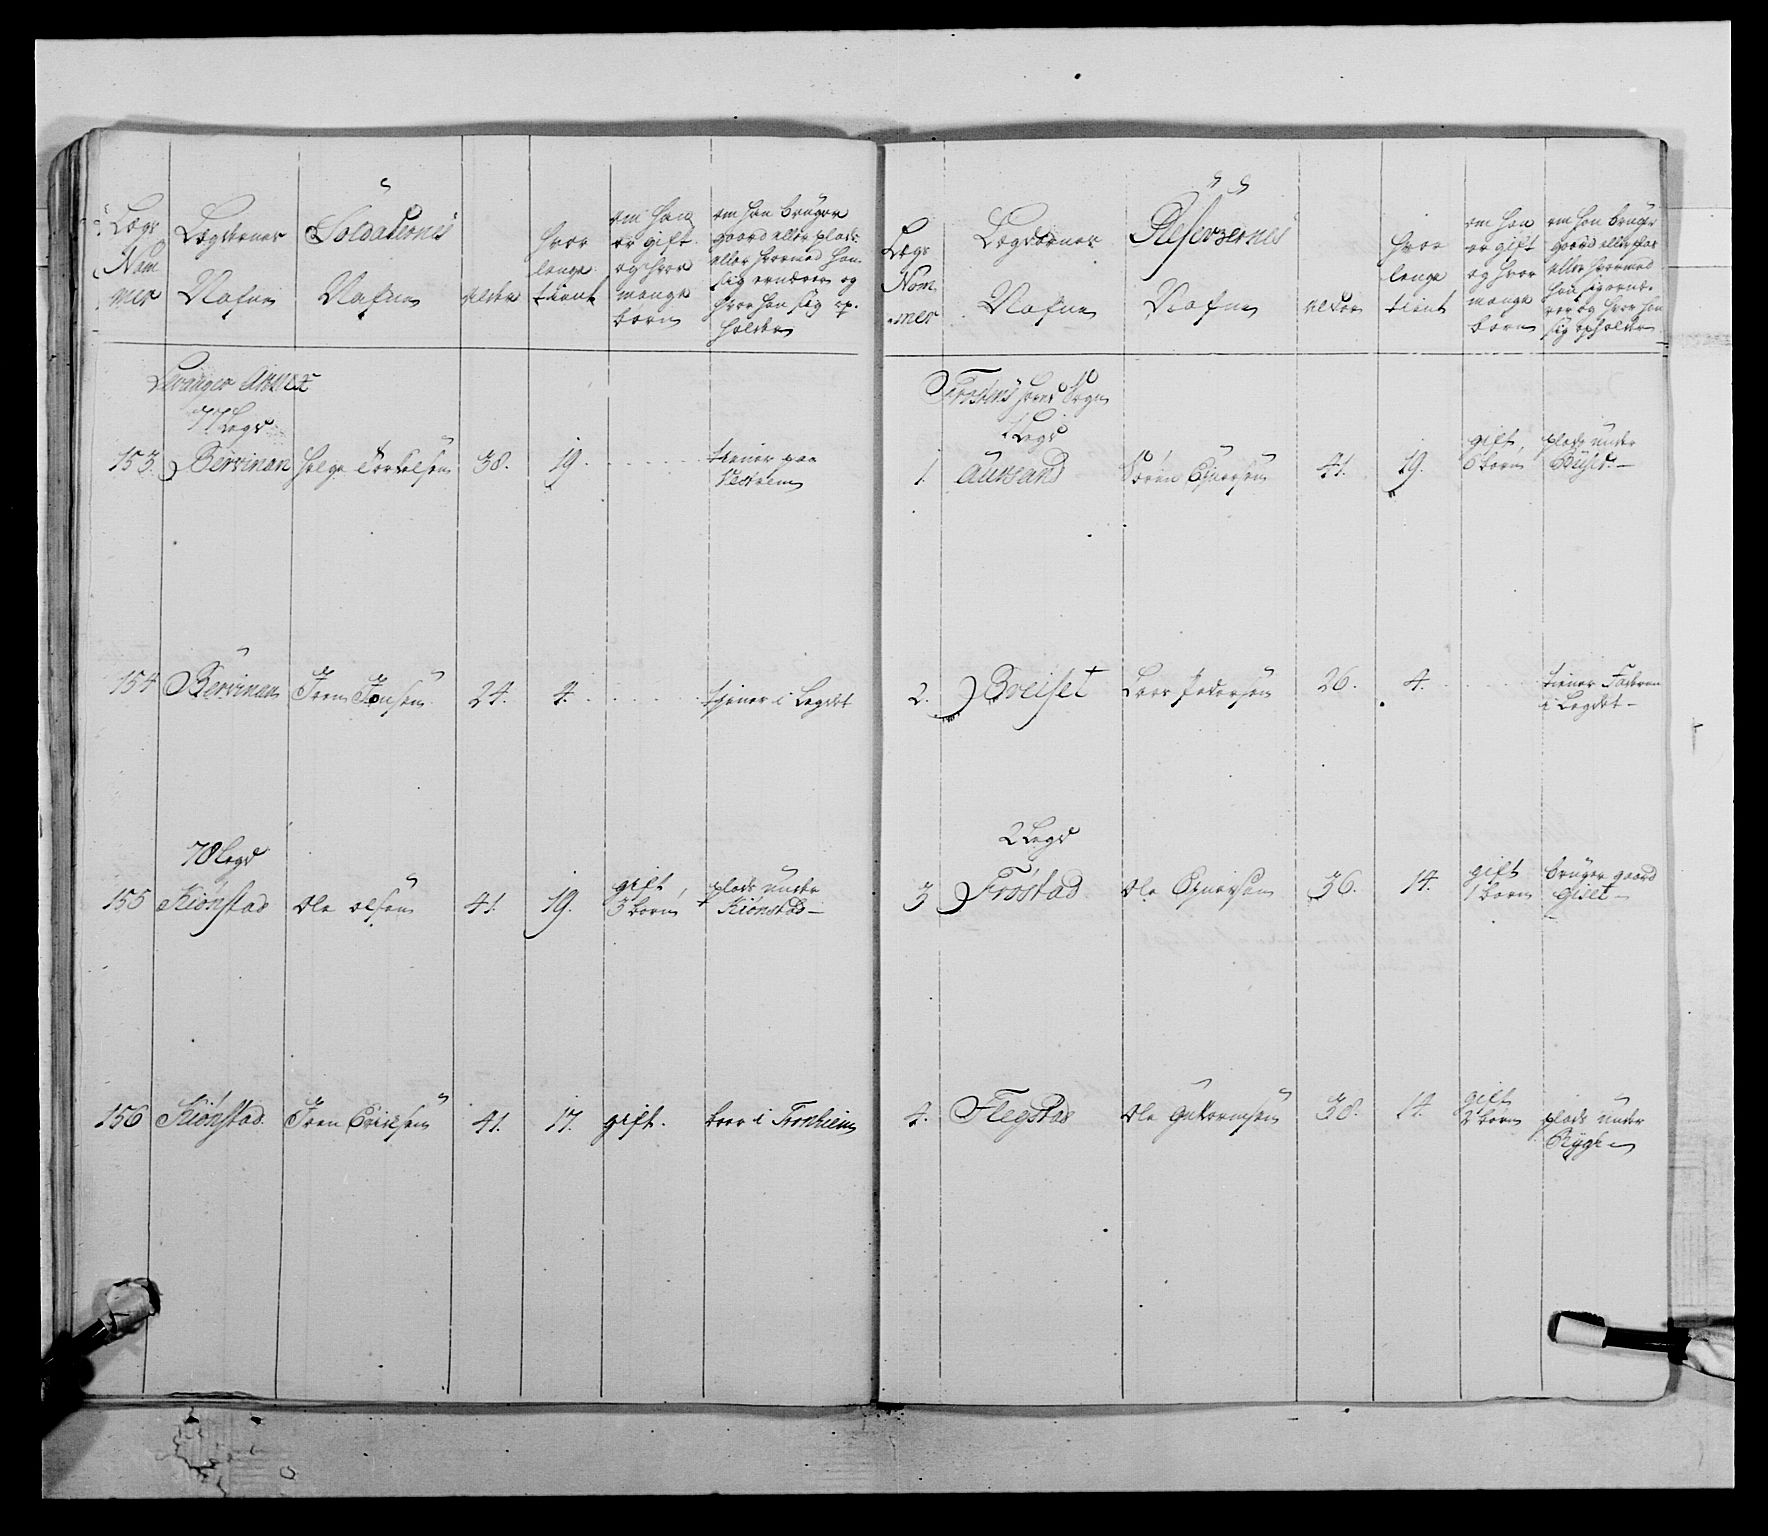 Legs
Nom
mer
Legdernes
Nafne
Soldaternis
Nafne
Alder
hvor
lenge
tient
om han
er gift
og hvor
mange
børn
om han bruger
gaard eller plads
eller hvormed han
sig ernærer og
hvor han sig op-
holder
Levanger Annex
77 Legd
153. Bervinan Helge Tordelsen 38. 19. tiener paa
154 Bervinan Iren Jonsen 24. 4. tjener i Legdet
78 Legd
155 Kiønstad Ole Olsen 41. 19. gift 3 børn plads under
Kiønstad
156 Kiønstad Iren Ericksen 41. 17. gift. boer i Tronhiem
Legs
Nom
mer
Legdernes
Nafne
Reservernes
Nafne
Alder
hvor
lenge
tient
om han
er gift
og hvor
mange
børn
om han bruger
gaard eller plas
eller hvormed
han sig ernæ-
rer og hvor han
sig opholder
Frostens hoved Sogn
1 Legd
1. Aursand Sören Ejnersen 41. 19. gift 6 børn plads under
2. Breiset Lars Pedersen 26. 4. tiener Faderen
i Legdet
2 Legd
3 Frøstad Ole Ejnersen 36. 14. gift 1 børn bruger gaard
4. Flegstad Ole Guttormsen 38. 14. gift 2 børn plads under
Rygh